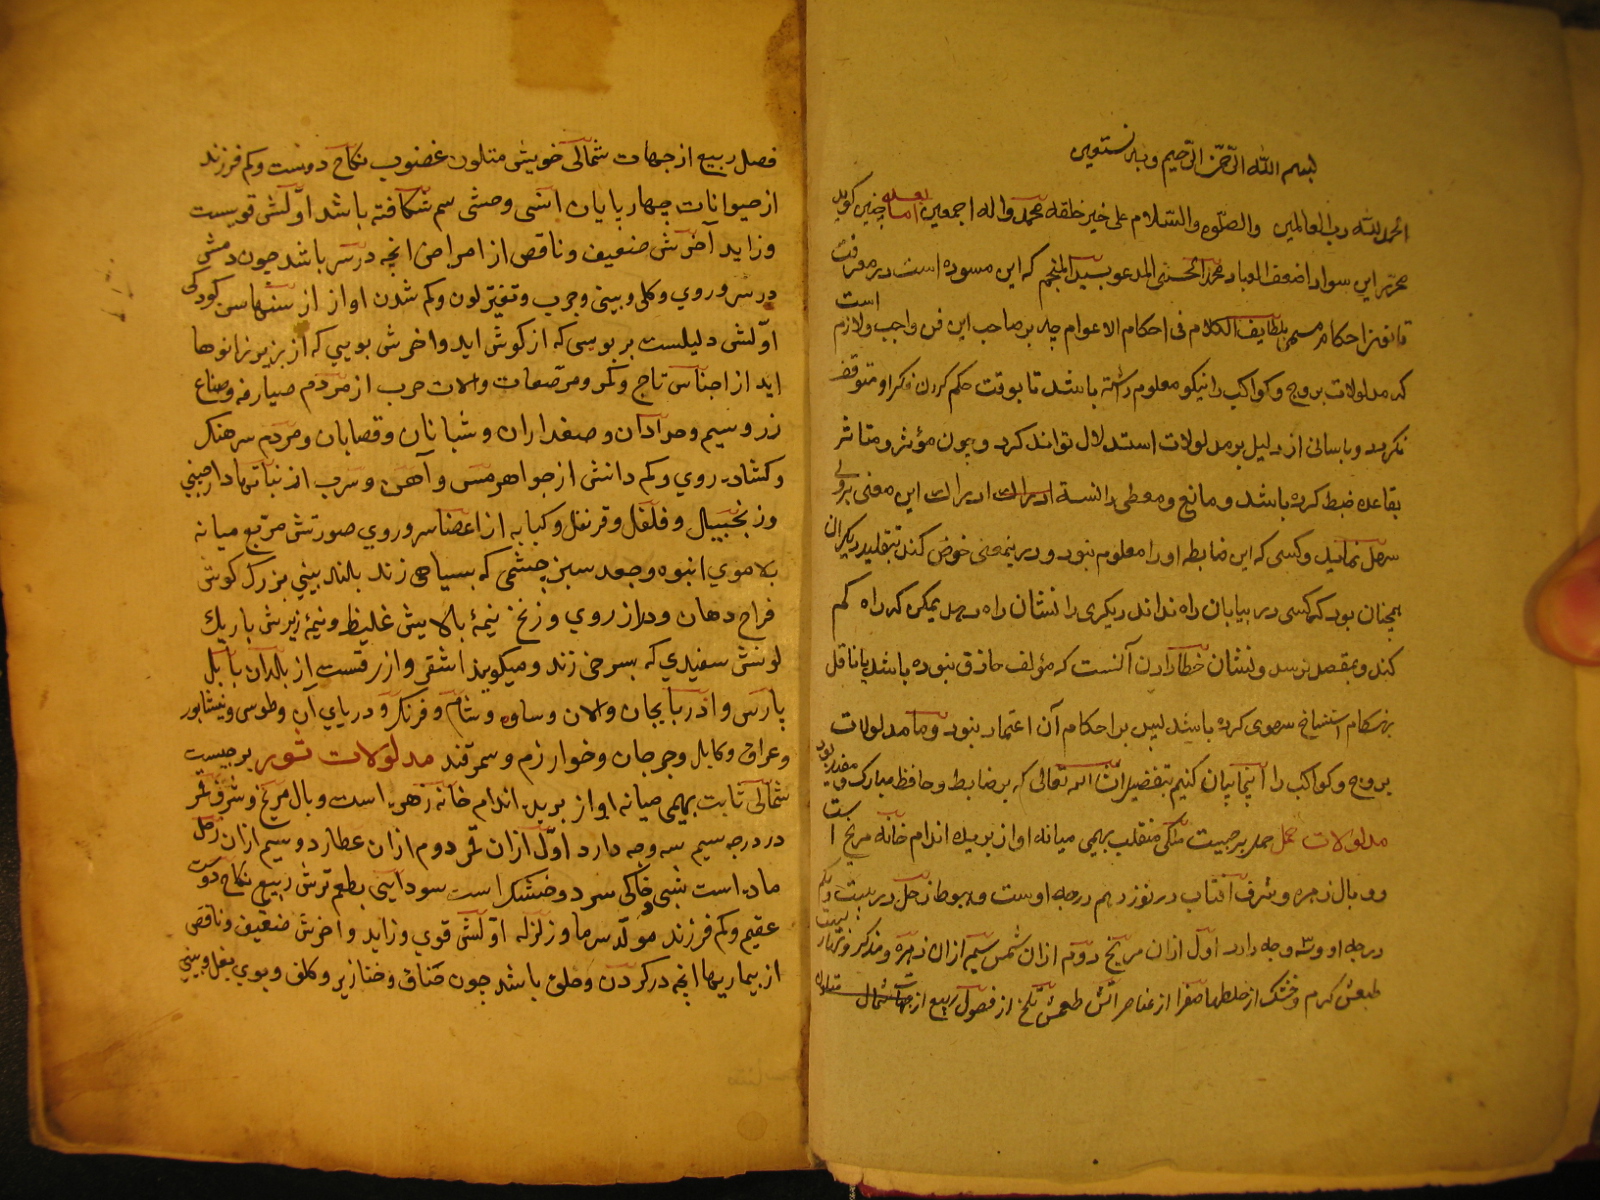 بسم الله الرحمن الرحیم وبه نستعین
الحمد لله رب العالمین والصلوة والسلام علی خیر خلقه محمد واله اجمعین اما بعد چنین کوید
محرر این سواد اضعف العباد محمد الحسنی المدعو بسید المنجم که این مسوده است در معرفت
قانون احکام مسمی بلطایف الکلام فی احکام الاعوام چه بر صاحب این فن واجب ولازم است
که مدلولات بروج و کواکب را نیکو معلوم داشته باشد تا بوقت حکم کردن فکر او متوقف
نکردد و باسانی از دلیل بر مدلولات استدلال تواند کرد و چون مؤثر و متاثر
بقاعده ضبط کرده باشد و مانع و معطی دانسته ادراک این معنی بر وی
سهل نماید و کسی که این ضابطه او را معلوم نبود و درینمعنی خوض کند بتقلید دیکران
همچنان بود که کسی در بیابان راه نداند دیکری را نشان راه دهد یمکن که راه کم
کند و بمقصد نرسد و نشان خطا دادن آنست که مؤلف حاذق نبوده باشد یا ناقل
بهنکام استنساخ سهوی کرده باشد پس بر احکام آن اعتماد نبود و ما مدلولات
بروج و کواکب را اینجا بیان کنیم بتفضیل ان شاء الله تعالی که بر ضابط و حافظ مبارک و مفید بود
مدلولات حمل حمل برجیست منقلب بهیمی میانه اواز بریده اندام خانه مریخ است
و وبال زهره و شرف آفتاب در نوزدهم درجه اوست و هبوط زحل در بیست و یکم
درجه او و سه وجه دارد اول ازان مریخ دوم ازان شمس سیم ازان زهره و مذکر و نهاریست
طبعش کرم و خشک از خلطها صفرا از عناصر آتش طعمش تلخ از فصول ربیع از جهات شمال
فصل ربیع از جهات شمالی خویش متلون غضوب نکاح دوست و کم فرزند
از حیوانات چهار پایان انسی و وحشی سم شکافته باشد اولش قویست
و زاید آخرش ضعیف و ناقص از امراض انچه در سر باشد چون دمش
در سر و روی و کلی و بینی و جرب و تغیر لون و کم شدن اواز از سنها سن کودکی
اولش دلیلست بر بویی که از کوش اید و اخرش بویی که از بزیر زانوها
اید از اجناس تاج و کمر و مرصعات و الات حرب از مردم صیارفه و صناع
زر و سیم و حدادان و صفداران و شبانان و قصابان و مردم سرهنک
و کشاده روی و کم دانش از جواهر مس و آهن و سرب از نباتها دارچینی
و زنجبیل و فلفل و قرنفل و کبابه از اعضا سر و روی صورتش مربع میانه
بالا موی انبوه و جعد سبز چشمی که بسیاهی زند بلند بینی بزرک کوش
فراخ دهان و دراز روی و زنخ نیمهٔ بالایش غلیظ و نیمهٔ زیرش باریک
لونش سفیدی که بسرخی زند و میکویند اشقر و ازرقست از بلدان بابل
پارس و اذربایجان و الان و ساوه و شام و فرنک و دریای آن و طوس و نیشابور
و عراق و کابل و جرجان و خوارزم و سمرقند مدلولات ثور برجیست
شمالی ثابت بهیمی میانه اواز بریده اندام خانه زهره است و بال مریخ و شرف قمر
در درجه سیم سه وجه دارد اول ازان قمر دوم ازان عطارد و سیم ازان زحل
ماده است شبی خاکی سرد و خشک است سودایی بطعم ترش ربیع نکاح دوست
عقیم و کم فرزند مولد سرما و زلزله اولش قوی و زاید و اخرش ضعیف و ناقص
از بیماریها انچه در کردن و حلق باشد چون خناق و خنازیر و کلف و بوی بغل و بینی